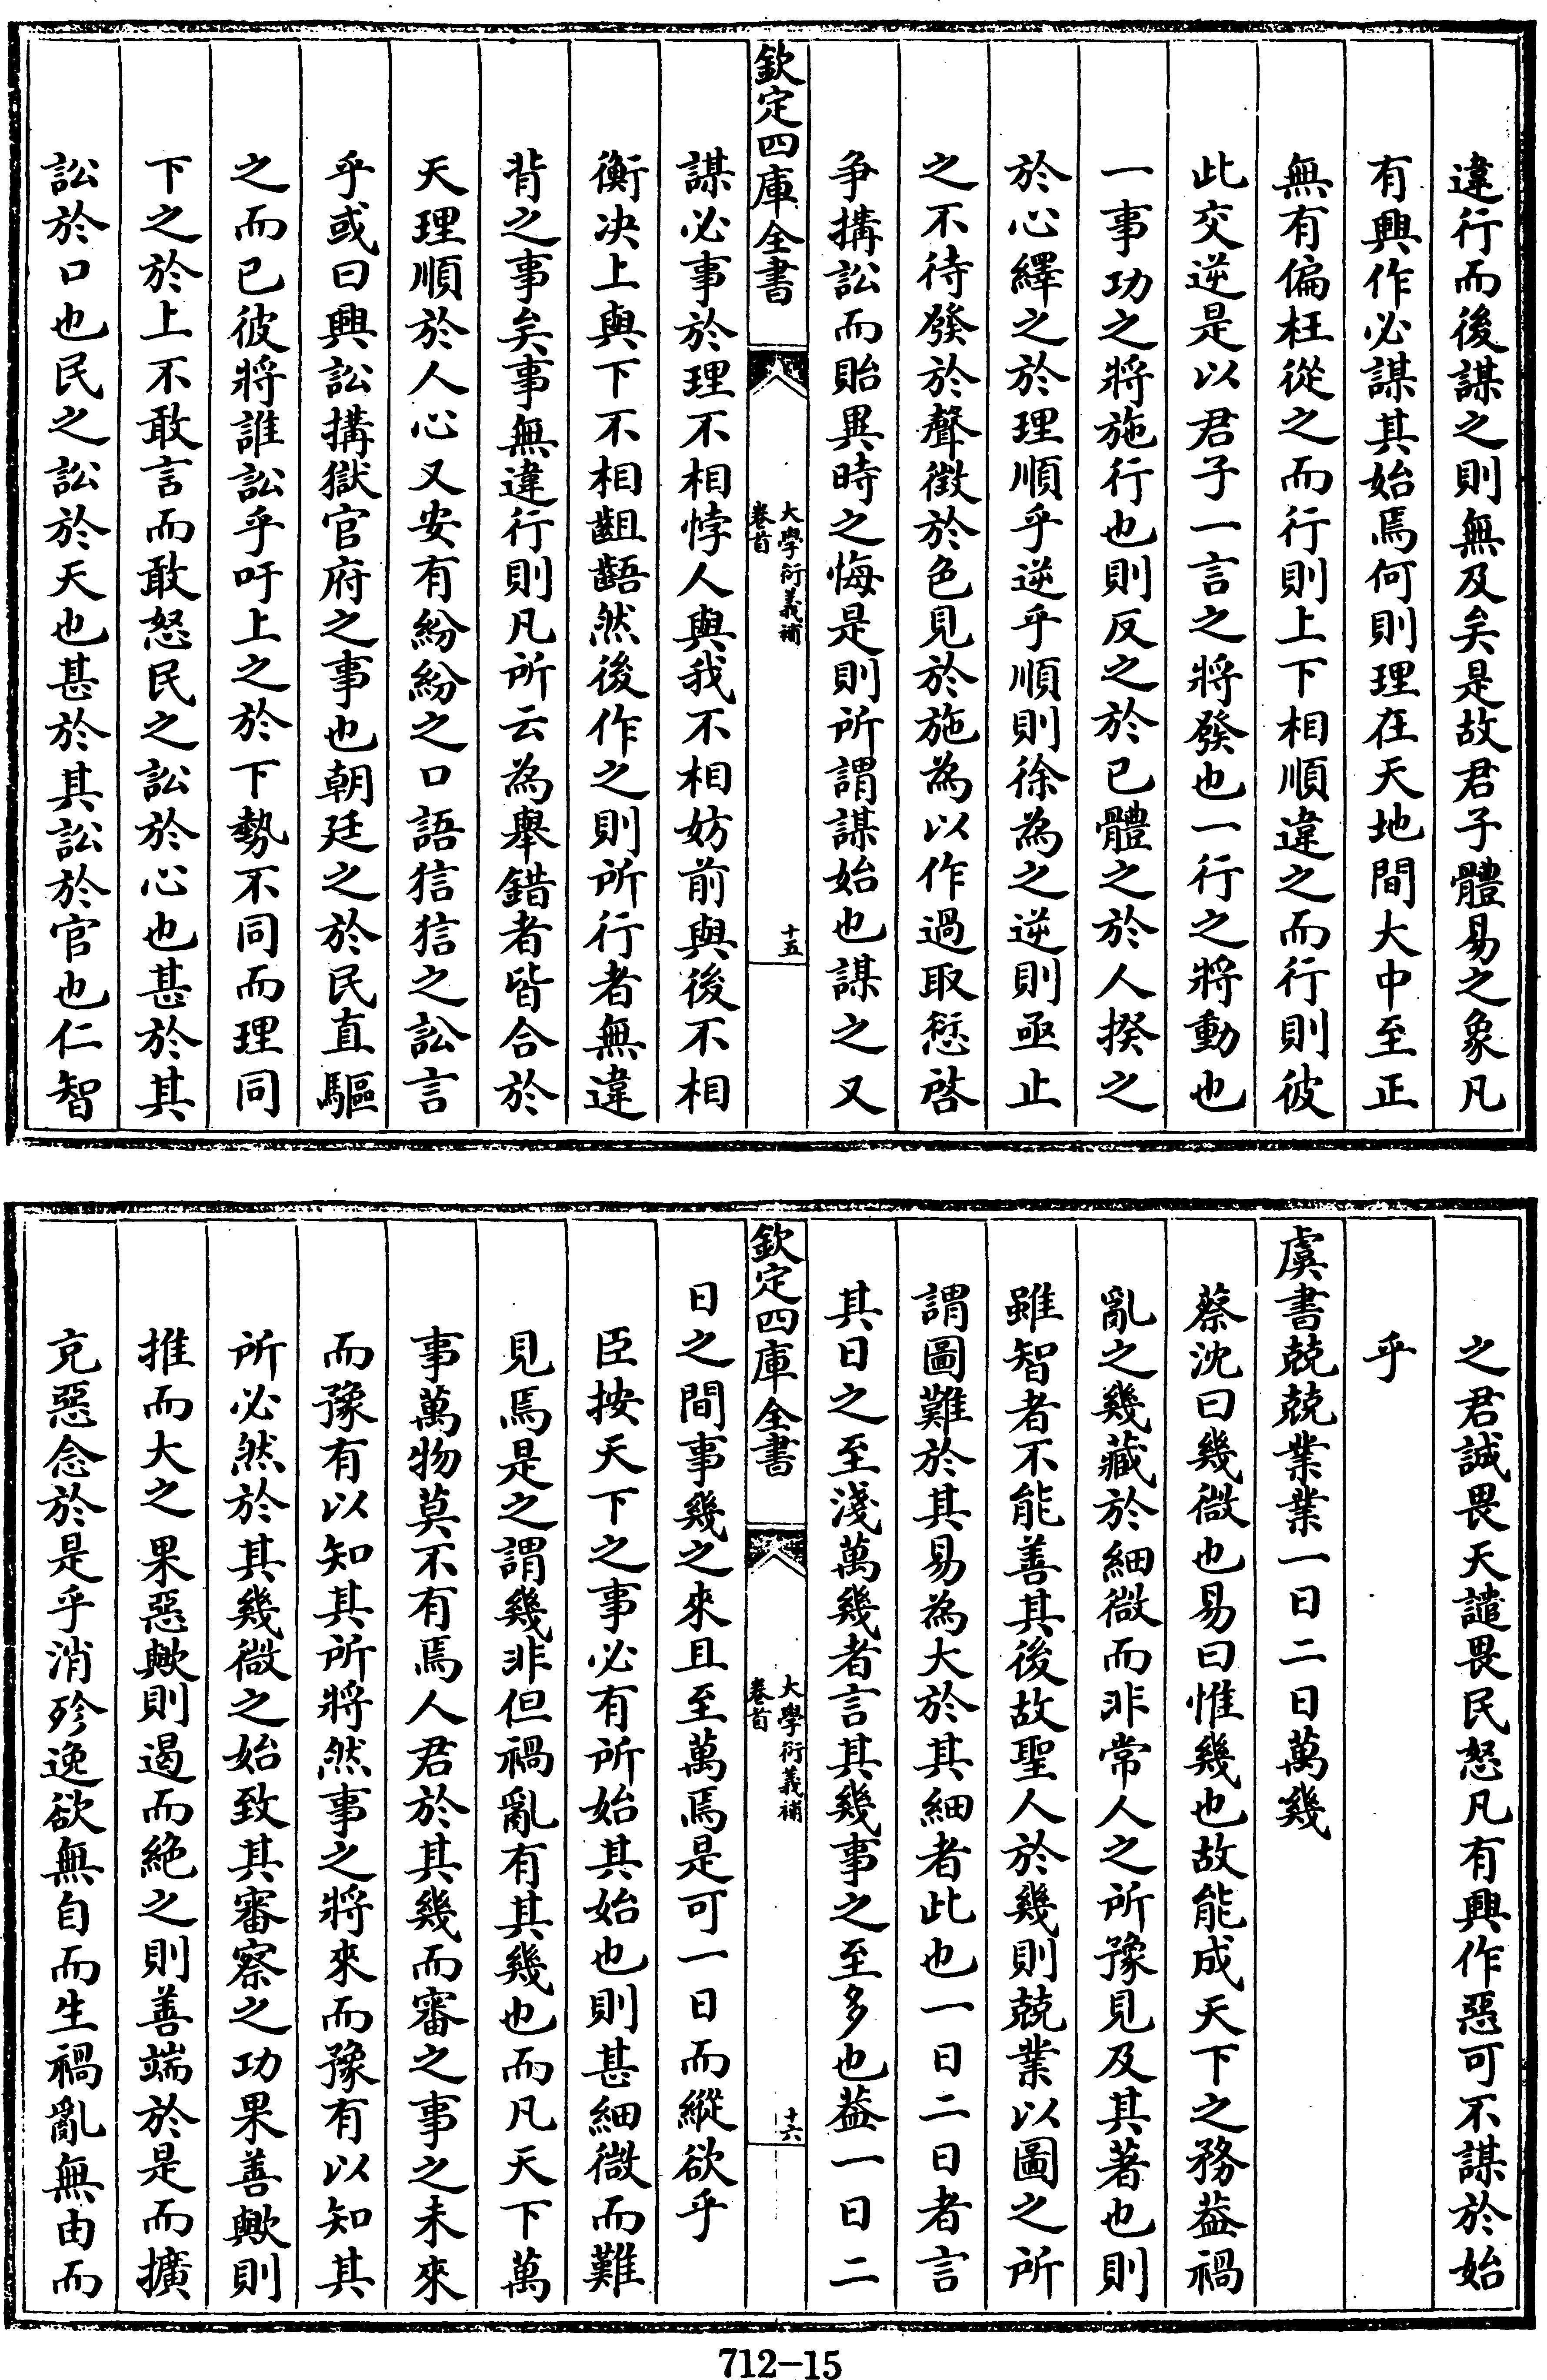 違行而後謀之則無及矣是故君子體易之象凡
有興作必謀其始焉何則理在天地間大中至正
無有偏枉從之而行則上下相順違之而行則彼
此交逆是以君子一言之將發也一行之將動也
一事功之將施行也則反之於已體之於人揆之
於心繹之於理順乎逆乎順則徐為之逆則亟止
之不待發於聲徵於色見於施為以作過取愆啓
争搆訟而貽異時之悔是則所謂謀始也謀之又
欽定四庫全書
大學衍義補
卷首
十五
謀必事於理不相悖人與我不相妨前與後不相
衡决上與下不相齟齬然後作之則所行者無違
背之事矣事無違行則凡所云為舉錯者皆合於
天理順於人心又安有紛紛之口語狺狺之訟言
乎或曰興訟搆獄官府之事也朝廷之於民直驅
之而已彼將誰訟乎吁上之於下勢不同而理同
下之於上不敢言而敢怒民之訟於心也甚於其
訟於口也民之訟於天也甚於其訟於官也仁智
之君誠畏天譴畏民怒凡有興作惡可不謀於始
乎
虞書兢兢業業一日二日萬幾
蔡沈曰幾微也易曰惟幾也故能成天下之務葢禍
亂之幾藏於細微而非常人之所豫見及其著也則
雖智者不能善其後故聖人於幾則兢業以圖之所
謂圖難於其易為大於其細者此也一日二日者言
其日之至淺萬幾者言其幾事之至多也葢一日二
欽定四庫全書
大學衍義補
卷首
十六
日之間事幾之來且至萬焉是可一日而縱欲乎
臣按天下之事必有所始其始也則甚細微而難
見焉是之謂幾非但禍亂有其幾也而凡天下萬
事萬物莫不有焉人君於其幾而審之事之未來
而豫有以知其所將然事之將來而豫有以知其
所必然於其幾微之始致其審察之功果善歟則
推而大之果惡歟則遏而絶之則善端於是而擴
充惡念於是乎消殄逸欲無自而生禍亂無由而
712-15